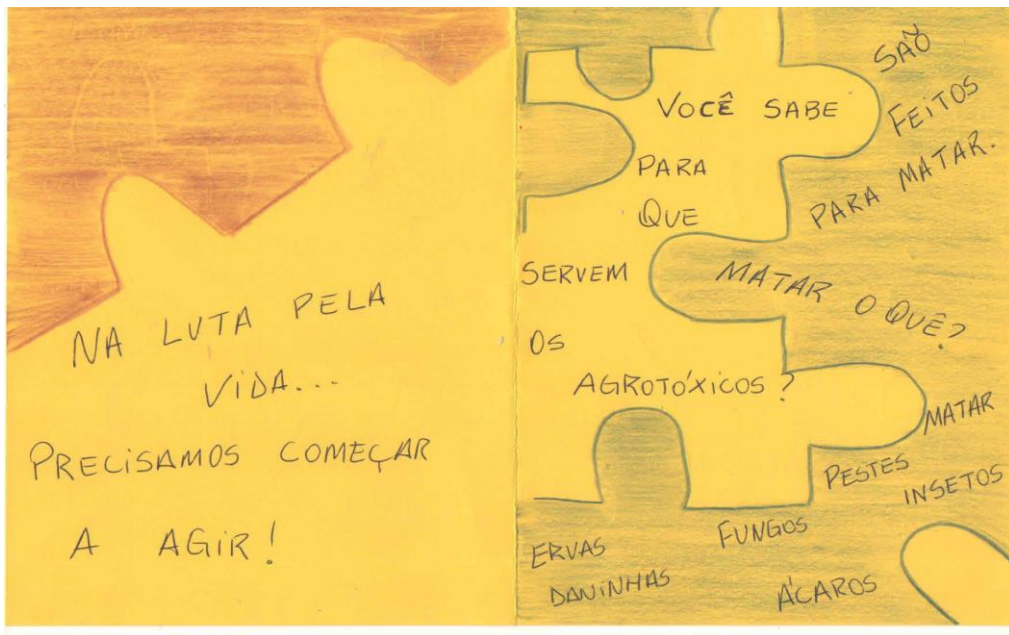 NA LUTA PELA
VIDA...
PRECISAMOS COMEÇAR
A AGIR!
VOCÊ SABE
PARA
QUE
SERVEM
OS
AGROTÓXICOS?
SÃO
FEITOS
PARA MATAR.
MATAR O QUÊ?
MATAR
PESTES
INSETOS
FUNGOS
ERVAS
DANINHAS
ÁCAROS